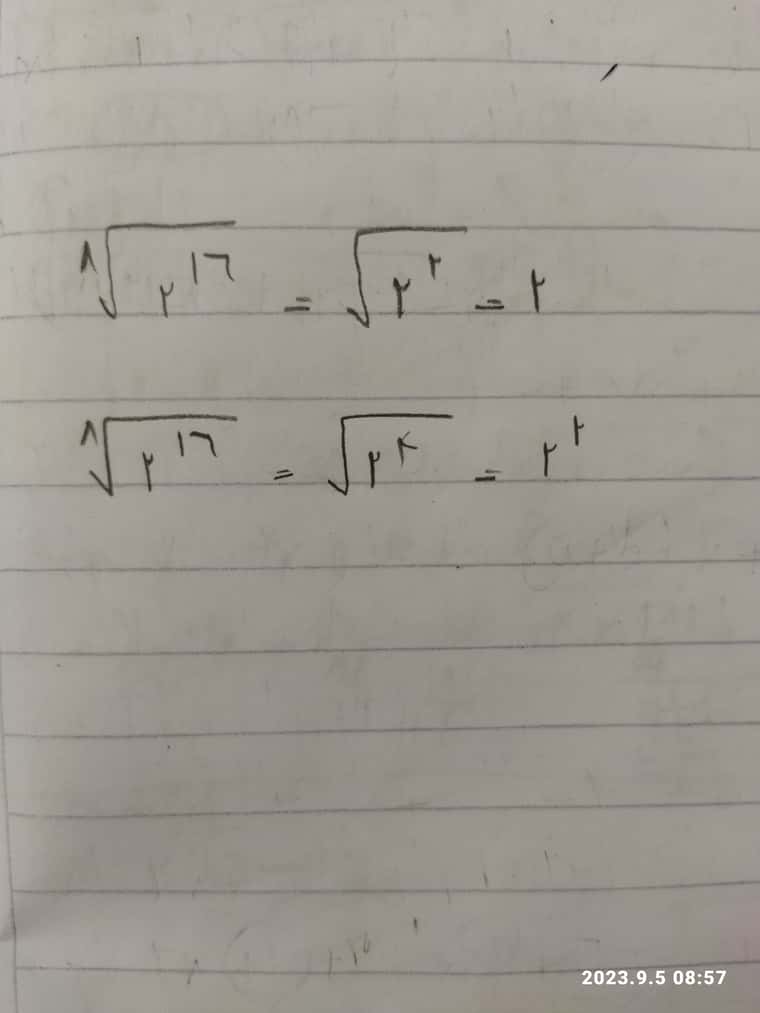 ۸√۲^۱۶ = √۲^۲ = ۲
۸√۲^۱۶ = √۲^۴ = ۲^۲
2023.9.5 08:57